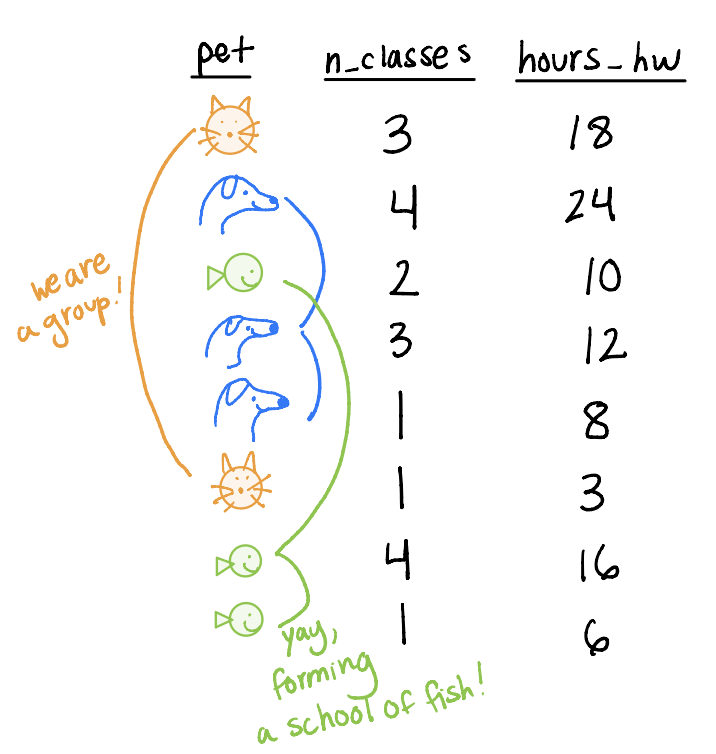 pet n_classes hours_hw
3 18
4 24
2 10
3 12
1 8
1 3
4 16
1 6
we are
a group!
yay,
forming
a school of fish!